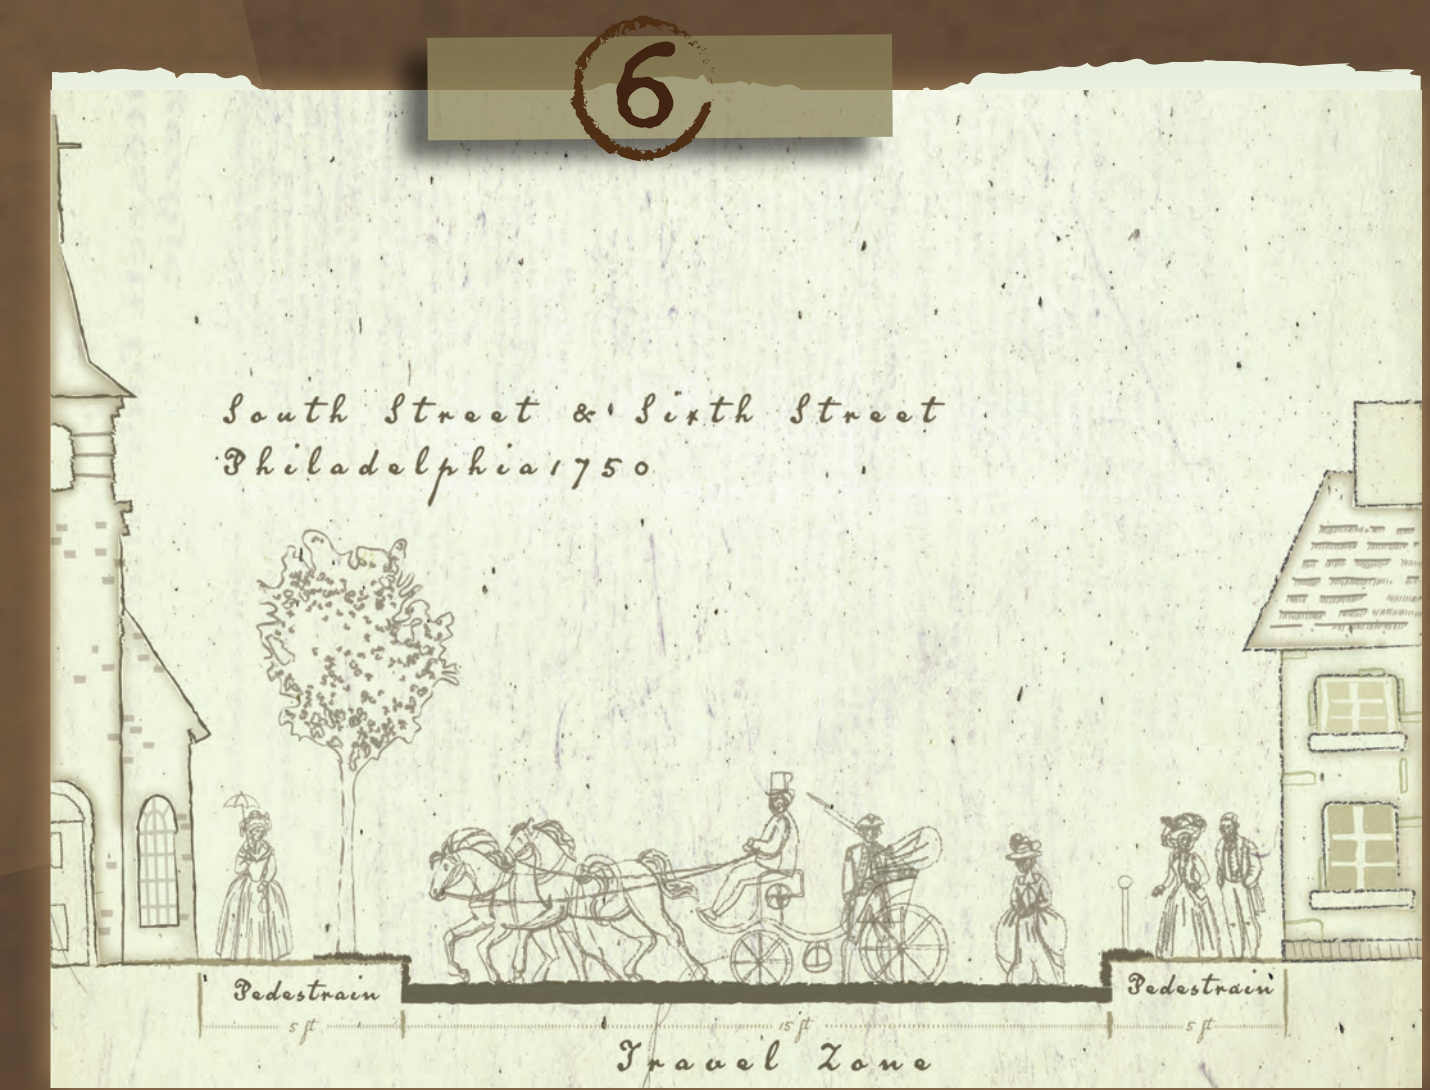 6
South Street & Sixth Street
Philadelphia 1750
Pedestrain
Pedestrain
5 ft
15 ft
5 ft
Travel Zone